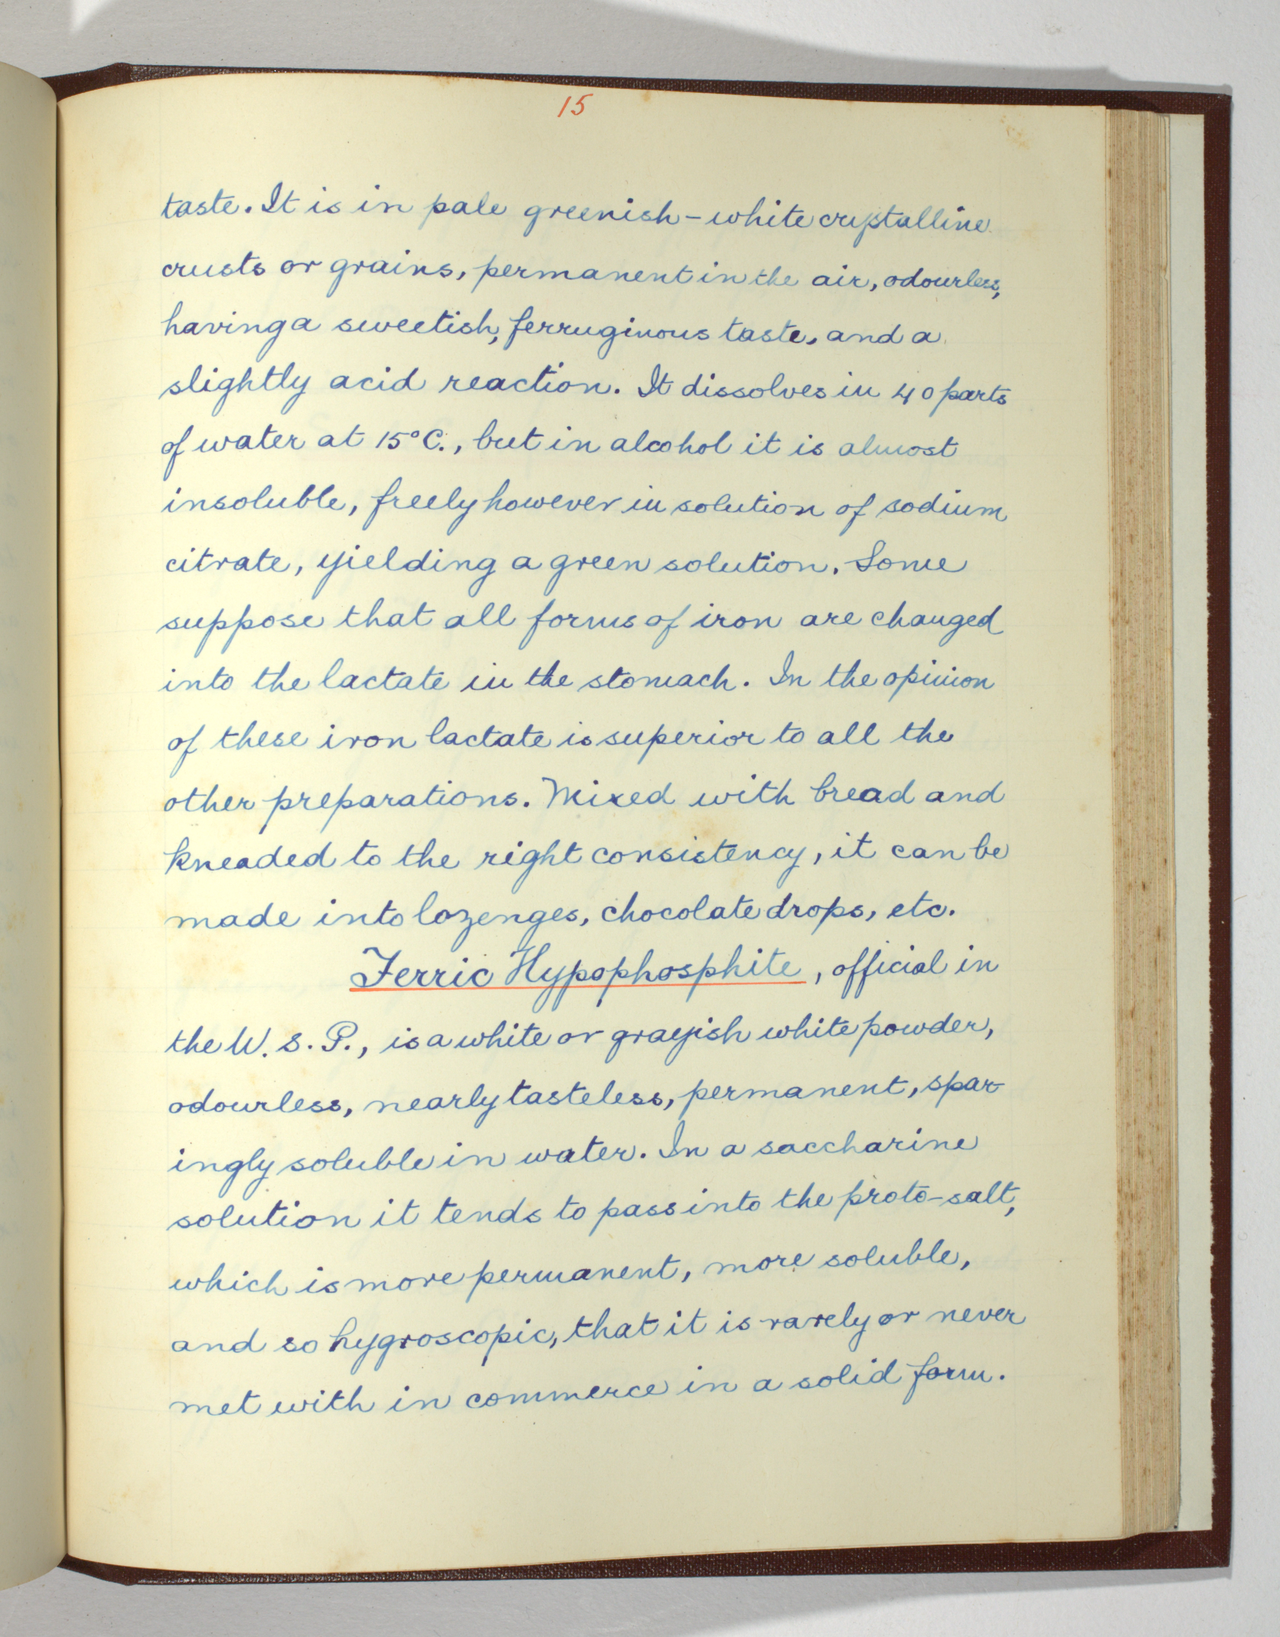 15
taste. It is in pale greenish-white crystalline
crusts or grains, permanent in the air, odourless,
having a sweetish, ferruginous taste, and a
slightly acid reaction. It dissolves in 40 parts
of water at 15°C., but in alcohol it is almost
insoluble, freely however in solution of sodium
citrate, yielding a green solution. Some
suppose that all forms of iron are changed
into the lactate in the stomach. In the opinion
of these iron lactate is superior to all the
other preparations. Mixed with bread and
kneaded to the right consistency, it can be
made into lozenges, chocolate drops, etc.
Ferric Hypophosphite, official in
the U. S. P., is a white or grayish white powder,
odourless, nearly tasteless, permanent, spar-
ingly soluble in water. In a saccharine
solution it tends to pass into the proto-salt,
which is more permanent, more soluble,
and so hygroscopic, that it is rarely or never
met with in commerce in a solid form.